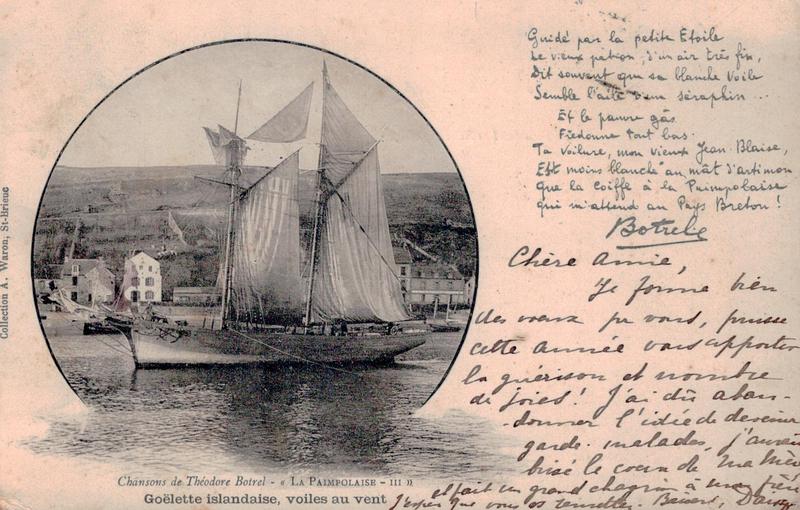 Guidé par la petite Étoile
Le vieux patron, d'un air très fin,
Dit souvent que sa blanche Voile
Semble l'aile d'un séraphin ...
Et le pauvre gâs
Fredonne tout bas.
Ta voilure, mon vieux Jean-Blaise,
Est moins blanche au mât d'artimon
Que la coiffe à la Paimpolaise
qui m'attend au Pays Breton !
Botrel
Chère Amie,
Je forme bien
des vœux pr vous, puisse
cette année vous apporter
la guérison et nombre
de joies! J'ai dû aban-
donner l'idée de devenir
garde-malades, j'aurais
brisé le cœur de ma Mère
et fait un grand chagrin à mon frère
J'espère que vous
Collection A. Waron, St-Brieuc
Chansons de Théodore Botrel - « LA PAIMPOLAISE - III »
Goëlette islandaise, voiles au vent